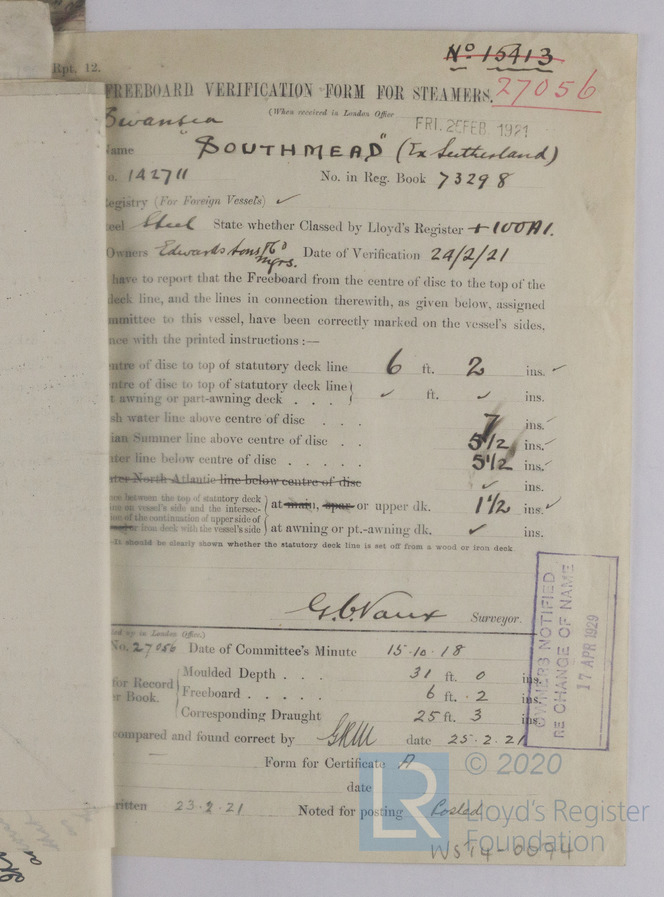 Rpt. 12.
No 15413
27056
FREEBOARD VERIFICATION FORM FOR STEAMERS.
(When received in London Office
Swansea
FRI. 25 FEB. 1921
Name "SOUTHMEAD" (Ex Sutherland)
No. 142711 No. in Reg. Book 73298
Registry (For Foreign Vessels) ✓
Steel State whether Classed by Lloyd's Register +100A1.
Owners Edwards Sons & Co Mgrs. Date of Verification 24/2/21
have to report that the Freeboard from the centre of disc to the top of the
deck line, and the lines in connection therewith, as given below, assigned
mmittee to this vessel, have been correctly marked on the vessel's sides,
nce with the printed instructions :—
entre of disc to top of statutory deck line 6 ft. 2 ins. ✓
entre of disc to top of statutory deck line
t awning or part-awning deck . . . ✓ ft. ✓ ins.
sh water line above centre of disc . . . 7 ins. ✓
ian Summer line above centre of disc . . 5 1/2 ins. ✓
nter line below centre of disc . . . . . 5 1/2 ins. ✓
ter North Atlantic line below centre of disc ✓ ins.
nce between the top of statutory deck
ne on vessel's side and the intersec-
ion of the continuation of upper side of
or iron deck with the vessel's side
at main, spar or upper dk. 1 1/2 ins. ✓
at awning or pt.-awning dk. ✓ ins.
It should be clearly shown whether the statutory deck line is set off from a wood or iron deck
G. C. Vaux Surveyor.
ed up in London Office.)
No. 27056 Date of Committee's Minute 15.10.18
for Record
er Book.
Moulded Depth . . . 31 ft. 0 ins.
Freeboard . . . . . 6 ft. 2 ins.
Corresponding Draught 25 ft. 3 ins.
compared and found correct by date 25.2.21
Form for Certificate A
date
written 23.2.21 Noted for posting Posted
OWNERS NOTIFIED
RE CHANGE OF NAME
17 APR 1929
LR
© 2020
Lloyd's Register
Foundation
WS14-0094